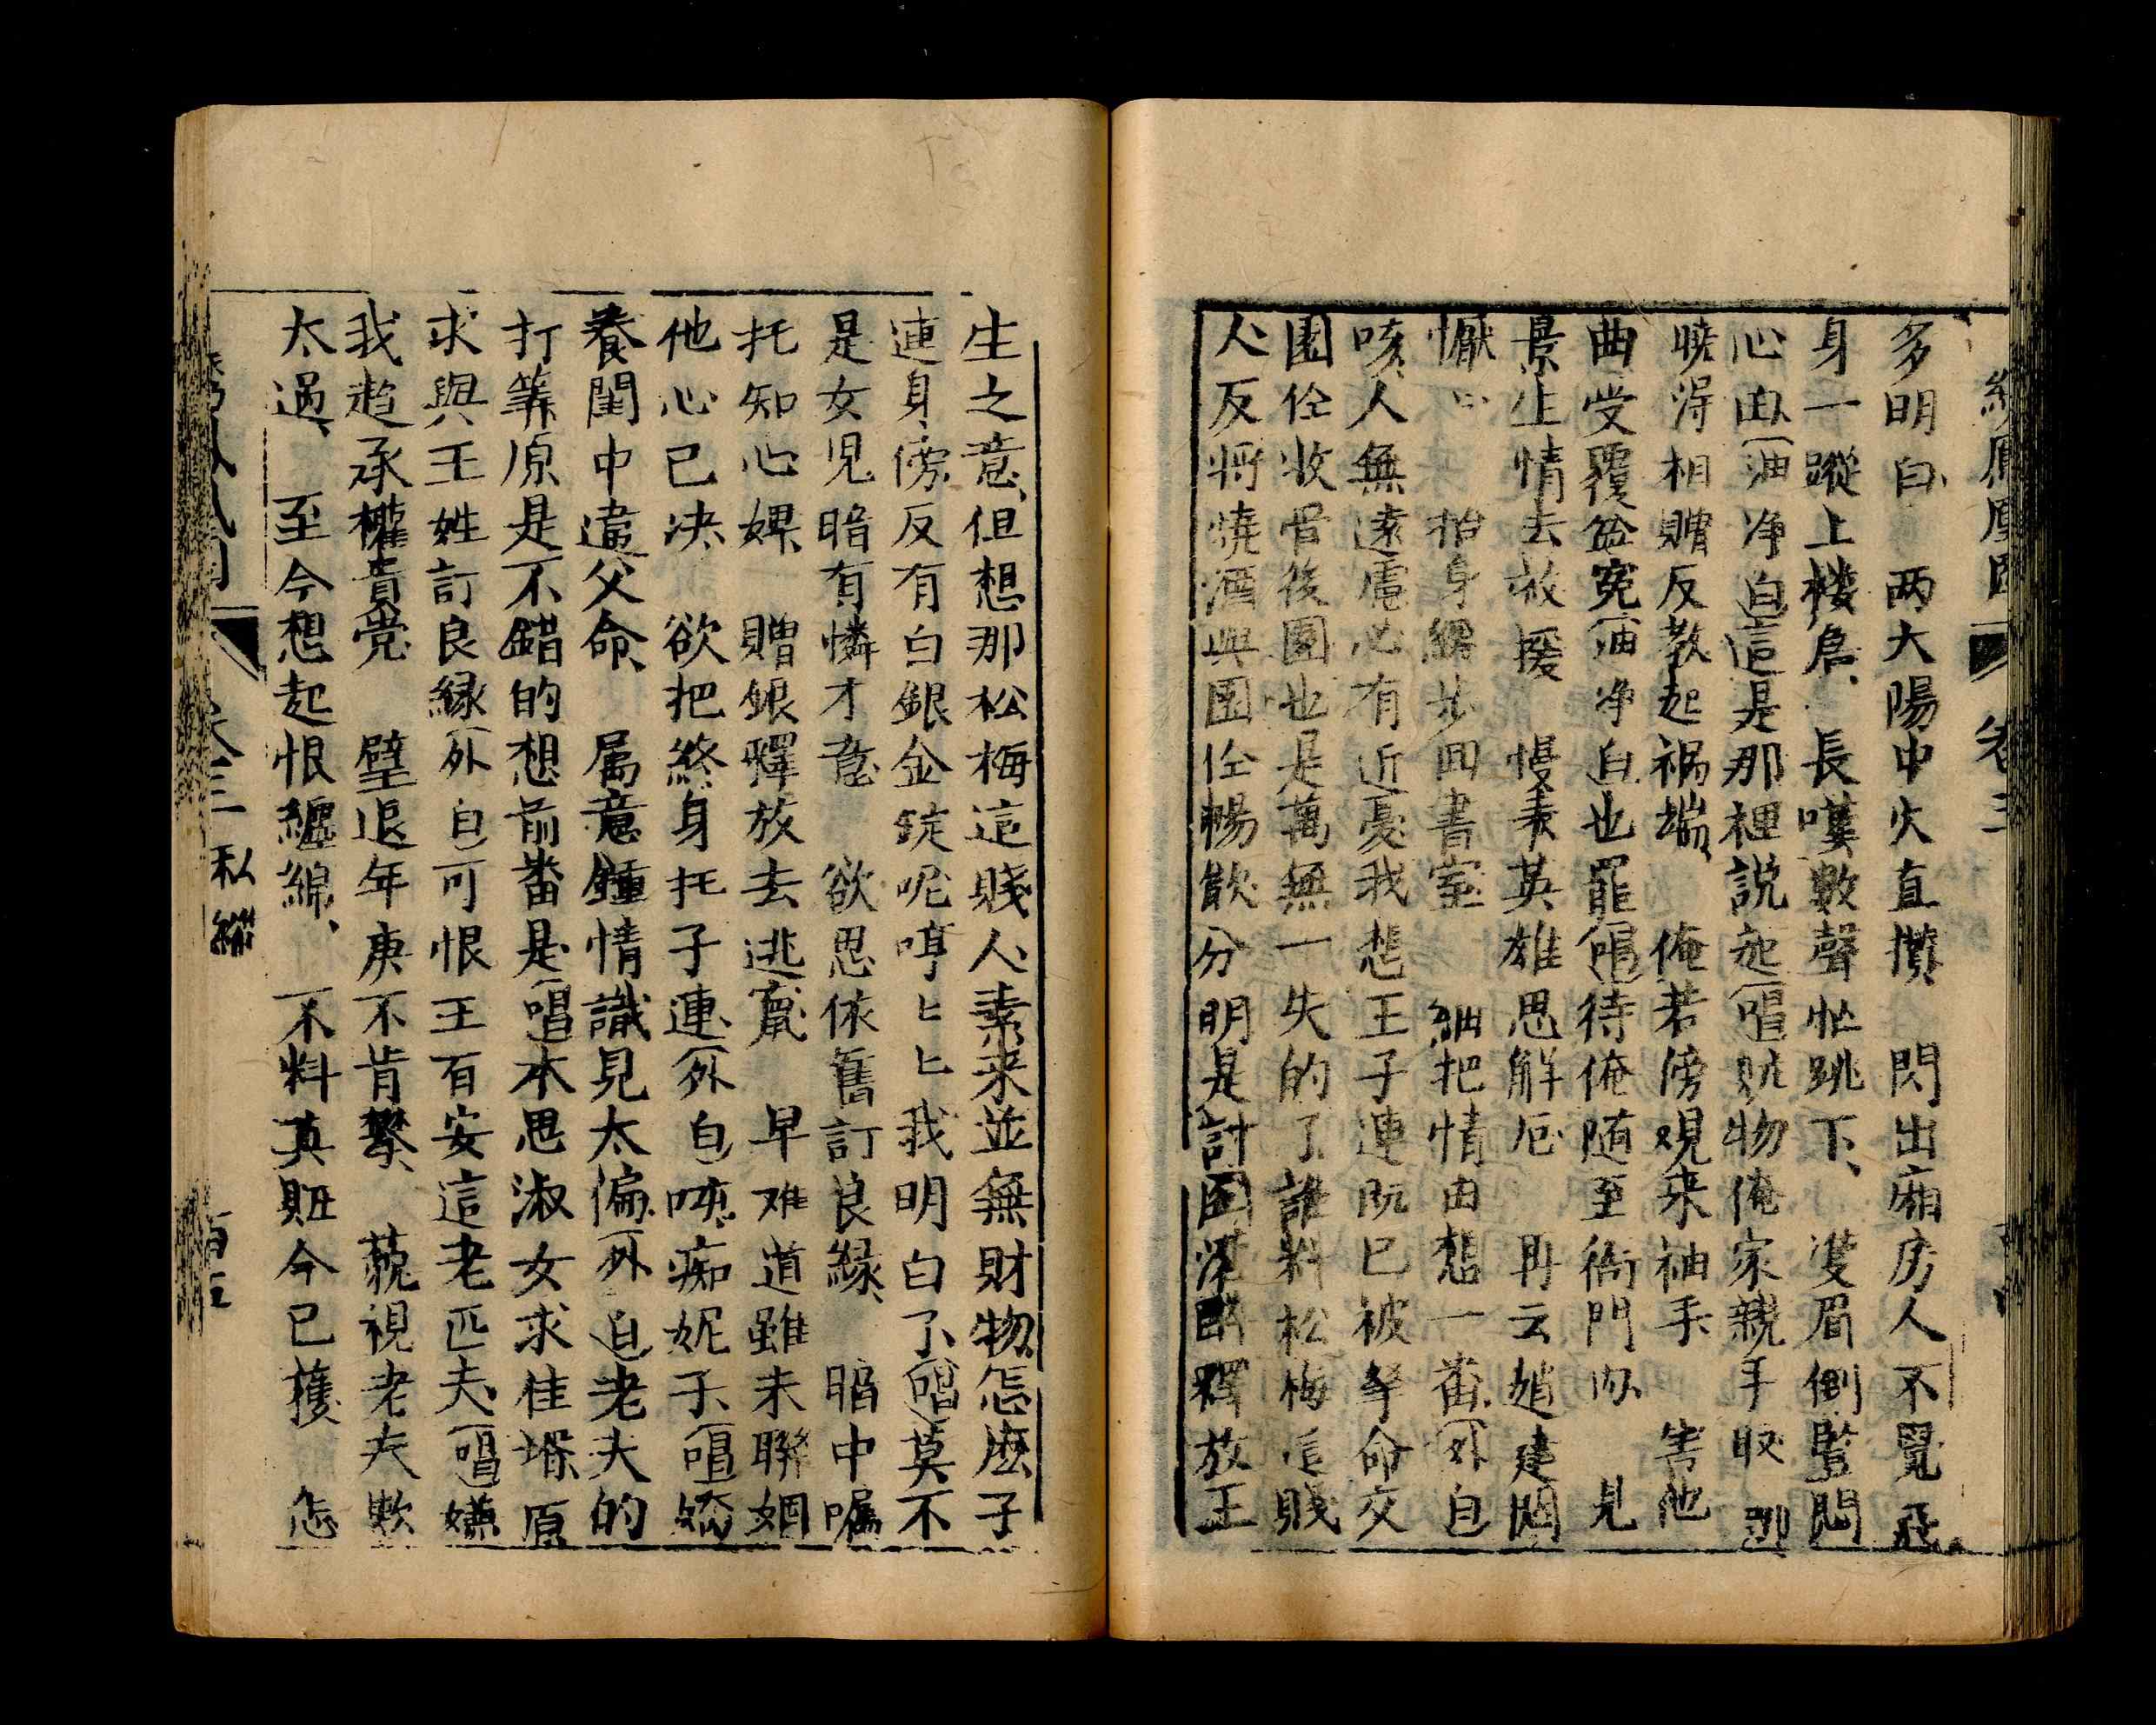 卷三
多明白 两大陽中火直攅 閃出廂房人不覓飛
身一蹤上樓房 長嘆數聲忙跳下 㕠眉倒竪悶
心田(油净白)這是那裡說起(唱)賍物俺家親手取
曉淂相贈反教起祸端 俺若傍覌来袖手 害他
曲受覆盆寃(油净白)也罷(唱)待俺随至衙門内 見
景生情去救援 慢表英雄思解厄 再云趙建
懨心 抬身 步回書室 細把情由想一畨(外白)
咳人無遠慮必有近憂我想王子連既已被拏命交
園佺收管後園也是萬無一失的了誰料松梅這賎
人反將燒酒與園佺暢飲分明是計 釋放王
生之意但想那松梅這賤人素来並無財物怎麽子
連身傍反有白銀金錠呢哼匕匕我明白了(唱)莫不
是女児暗有憐才意 欲思依舊訂良緣 暗中嘱
托知心婢 贈銀釋放去逃竄 早难道雖未聯姻
他心已决 欲把終身托子連(外白)咦痴妮子(唱)矯
養閨中違父命 属意鍾情識見太偏(外白)老夫的
打筭原是不錯的想前畨是(唱)本思淑女求佳壻原
求與王姓訂良緣(外白)可恨王有安這老匹夫(唱)嫌
我趋承權貴党 璧退年庚不肯攀 藐視老夫欺
太過 至今想起恨纏綿 不料真賍今已獲 怎
卷三 私縱 百五